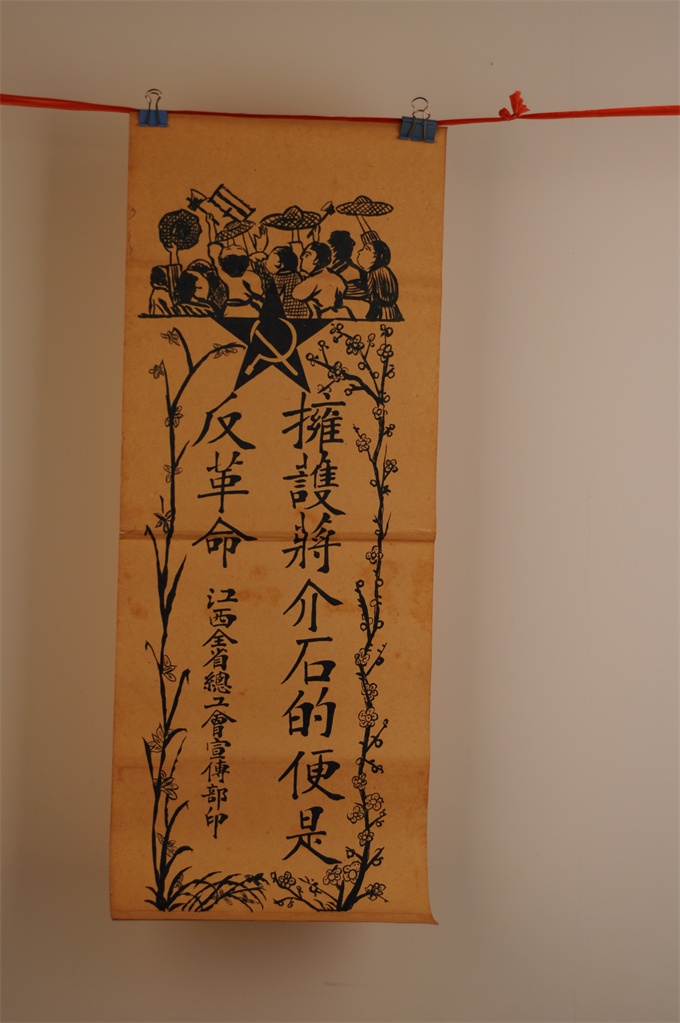 擁護蔣介石的便是
反革命
江西全省總工會宣傳部印